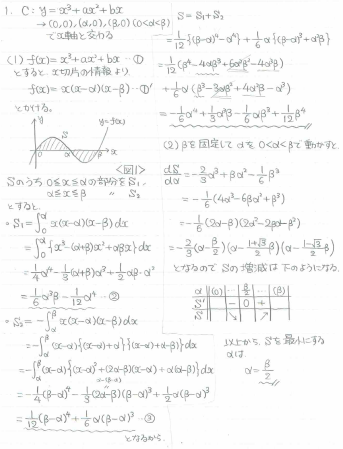 1. C: y = x³ + ax² + bx
→ (0,0), (α,0), (β,0) (0<α<β)
でx軸と交わる
(1) f(x) = x³ + ax² + bx …①
とすると、x切片の情報より
f(x) = x(x-α)(x-β) …①'
とかける。
y
S
y=f(x)
0
α
β
x
<図1>
Sのうち 0≦x≦αの部分をS₁,
α≦x≦β 〃 S₂
とすると、
・S₁ = ∫₀^α x(x-α)(x-β)dx
= ∫₀^α {x³-(α+β)x²+αβx}dx
= 1/4 α⁴ - 1/3 (α+β)α³ + 1/2 αβ・α²
= 1/6 α³β - 1/12 α⁴ …②
・S₂ = -∫_α^β x(x-α)(x-β)dx
= -∫_α^β (x-α){(x-α)+α}{(x-α)+α-β)}dx
= -∫_α^β (x-α){(x-α)²+(2α-β)(x-α)+α(α-β)}dx
= -1/4 (β-α)⁴ - 1/3 (2α-β)(β-α)³ + 1/2 α(β-α)³
= 1/12 (β-α)⁴ + 1/6 α(β-α)³ …③
となるから、
S = S₁ + S₂
= 1/12 {(β-α)⁴-α⁴} + 1/6 α{(β-α)³+α²β}
= 1/12 (β⁴-4αβ³+6α²β²-4α³β)
+ 1/6 α(β³-3αβ²+4α²β-α³)
= -1/6 α⁴ + 1/3 α³β - 1/6 αβ³ + 1/12 β⁴
(2) βを固定してαを0<α<βで動かすと、
dS/dα = -2/3 α³ + βα² - 1/6 β³
= -1/6 (4α³-6βα²+β³)
= -1/6 (2α-β)(2α²-2βα-β²)
= -2/3 (α-β/2)(α-(1+√3)/2 β)(α-(1-√3)/2 β)
となるので Sの増減は下のようになる.
α (0) … β/2 … (β)
S' - 0 +
S ↘ ↗
以上から、Sを最小にする
αは
α = β/2